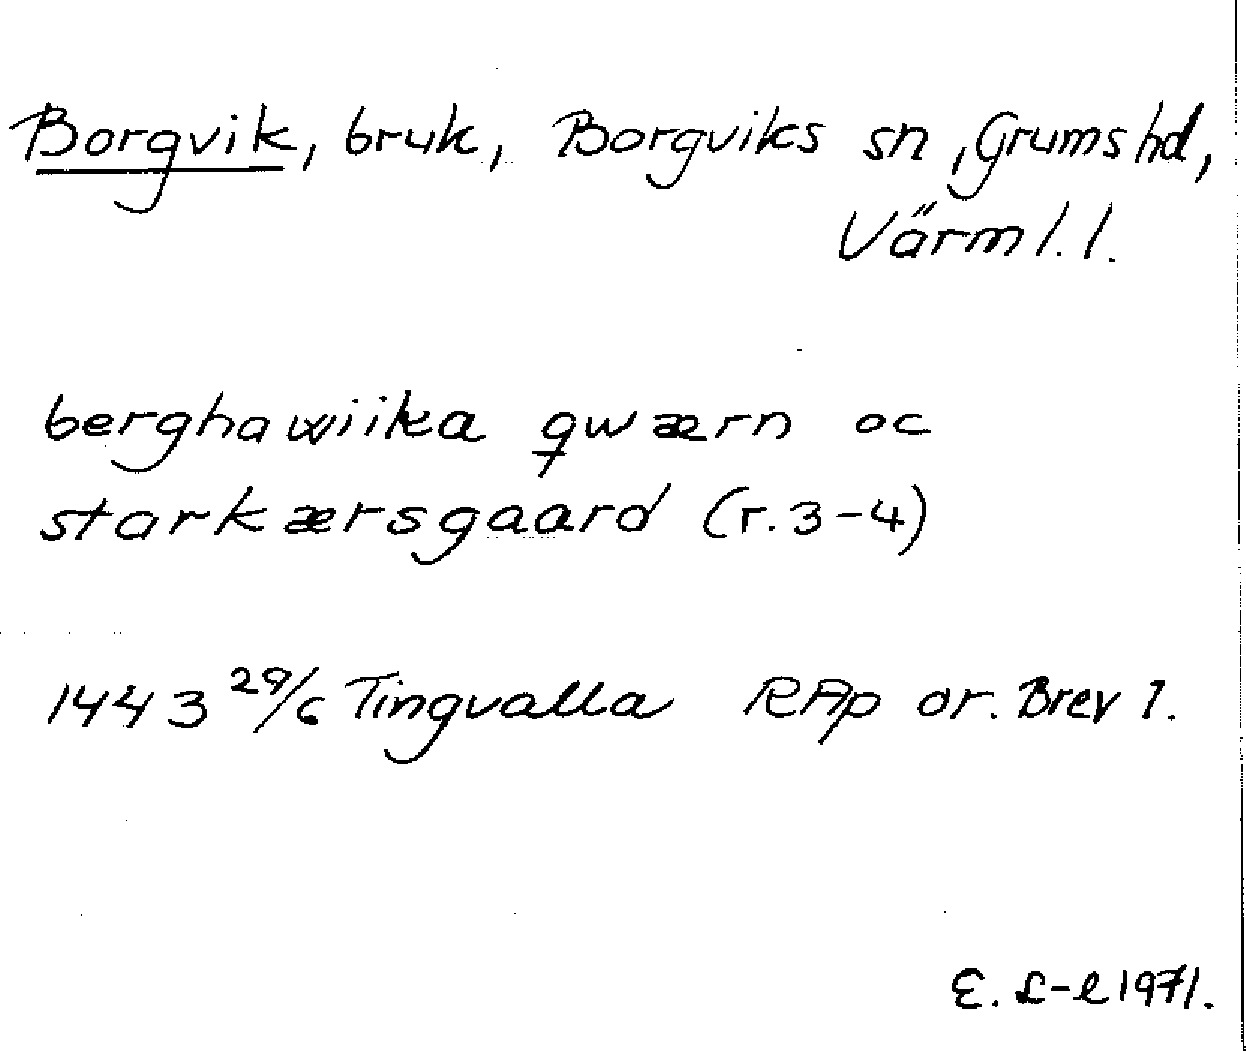 Borgvik, bruk, Borgviks sn, Grums hd,
Värml. l.
berghawiika qwærn oc
starkærsgaard (r. 3-4)
1443 29/6 Tingvalla RAp or. Brev 1.
E. L-l 1971.